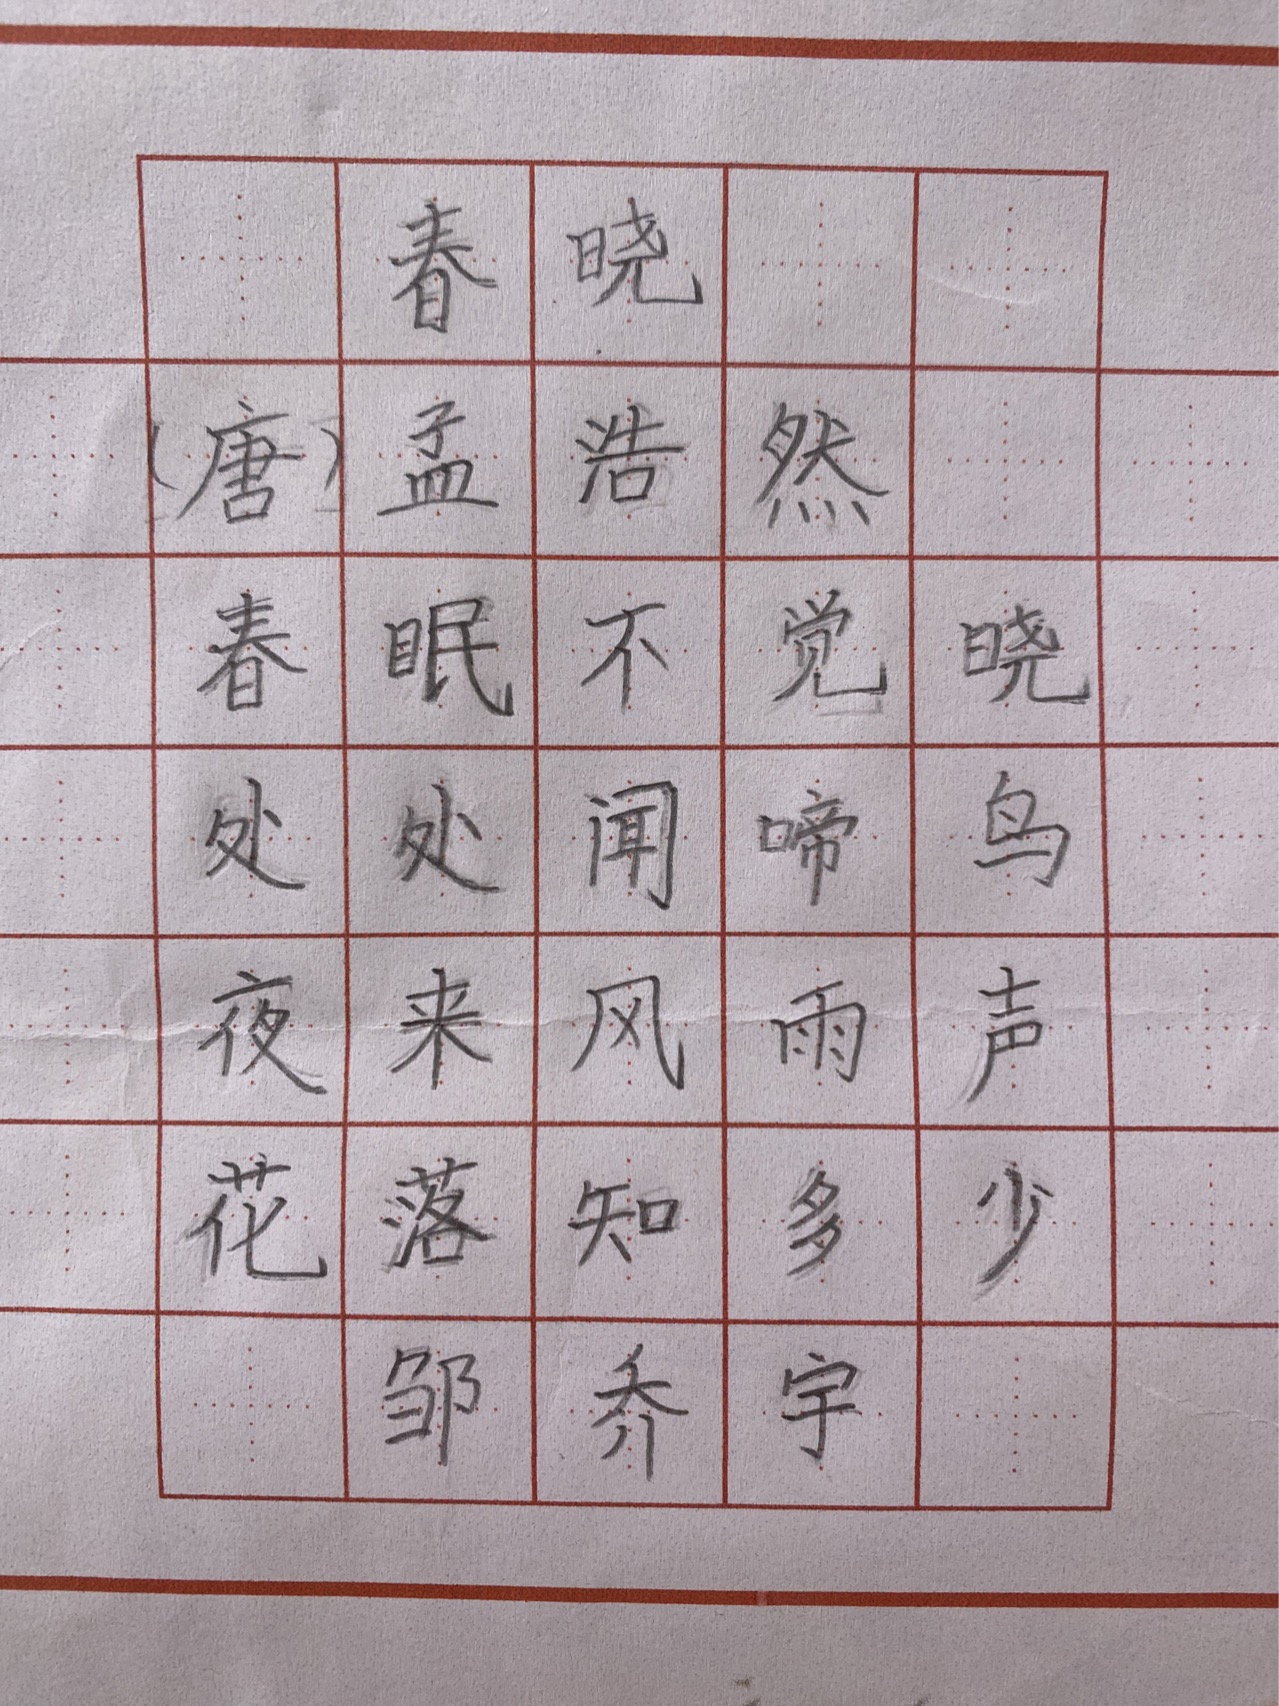 春晓
（唐）孟浩然
春眠不觉晓
处处闻啼鸟
夜来风雨声
花落知多少
邹乔宇